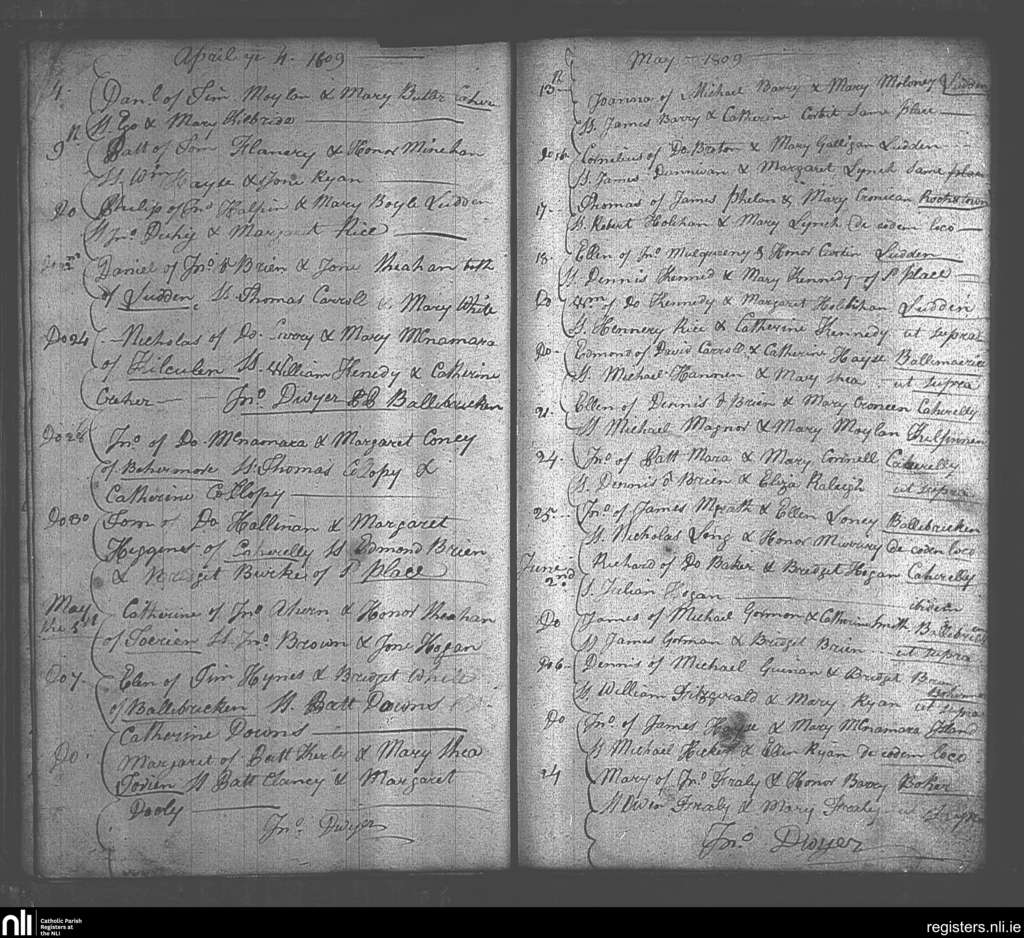 April ye 4. 1809
4. Danl. of Tim. Moylan & Mary Butler Caher
S. Ego & Mary
9th Patt of Tom Flanery & Honor Minehan
Ss Wm Hayse & Jone Ryan
Do Philip of Jno Halpin & Mary Boyle Ludden
Ss Jno. Dickey & Margaret Rice
Daniel of Jno. O Brien & Jone Sheahan both
of Ludden Ss. Thomas Carroll & Mary White
Do 24 Nicholas of Do. & Mary McNamara
of Kilculen Ss. William Henedy & Catherine
Jno. Dwyer Ballibricken
Do 28 Jno of Do McNamara & Margaret Coney
of Bohermore Ss. Thomas Colopy &
Catherine Collopy
Do 30 Tom of Do Hallinan & Margaret
Higgenes of Caherelly Ss Edmond Brien
& Bridget Burke of S Place
May the 5th Catherine of Jno Ahern & Honor Sheahan
of Ss. Jno. Brown & Jone Hogan
Do 7. Elen of Tim Hynes & Bridget White
of Ballibricken Ss. Batt Downs
Catherine Downs
Do. Margaret of Patt Kerby & Mary Shea
Ss Batt Clancy & Margaret
Dooly
Jno. Dwyer
May 1809
13th Joanna of Michael Barry & Mary Moloney Ludden
Ss. James Barry & Catherine Corbit Same place
Do 16. Cornelius of Do. & Mary Galligan Ludden
Ss. James Dunnivan & Margaret Lynch Same place
17. Thomas of James Phelan & Mary Cronican
S. Robert & Mary Lynch de eodem loco
18. Ellen of Jno & Honor Ludden
Ss. Dennis Kenned & Mary Kennedy of S. place
Do Wm of Do Kennedy & Margaret Ludden
Ss. Hennery Rice & Catherine Kennedy ut supra
Do Edmond of David Carroll & Catherine Hayse
Ss. Michael Hannon & Mary Shea ut supra
21. Ellen of Dennis O Brien & Mary Croneen Caherelly
Ss Michael Magnor & Mary Moylan
24. Jno of Patt Mara & Mary Connell Caherelly
Ss. Dennis O Brien & Eliza Raleigh ut supra
25. Jno. of James Mgrath & Ellen Loney Ballibricken
Ss. Nicholas Long & Honor Murrury de eodem loco
June 2nd Richard of Do Baker & Bredget Hogan Caherelly
S. Julian Hogan ibidem
Do James of Michael Gorman & Catherine Smith Ballibricken
Ss James Gorman & Bridget Brien ut supra
Do 6. Dennis of Michael Guinan & Bridget Brien
Ss William Fitzgerald & Mary Ryan ut supra
Do Jno. of James & Mary McNamara Island
Ss Michael Hickey & Ellen Ryan de eodem loco
14 Mary of Jno. Fraly & Honor Barry Boher
Ss Owen Frealy & Mary Frealy ut supra
Jno Dwyer
nli Catholic Parish
Registers at
the NLI
registers.nli.ie